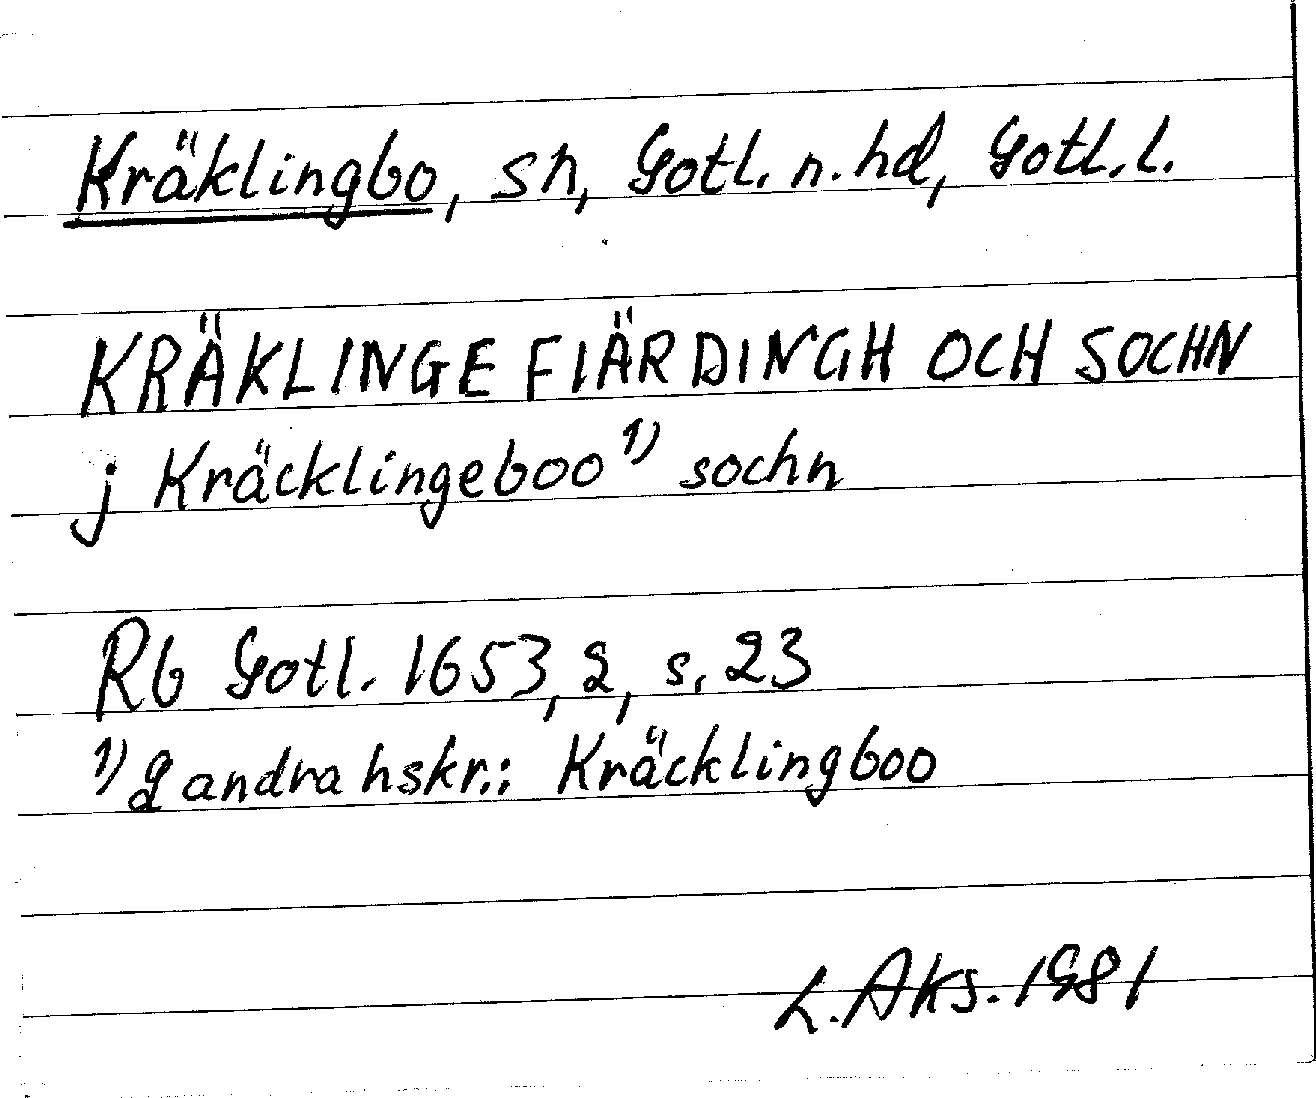 Kräklingbo, sn, Gotl. n. hd, Gotl. l.
KRÄKLINGE FIÄRDINGH OCH SOCHN
j Kräcklingeboo 1) sochn
Rb Gotl. 1653, 2, s. 23
1) 2 andra hskr.: Kräcklingboo
L. Aks. 1981